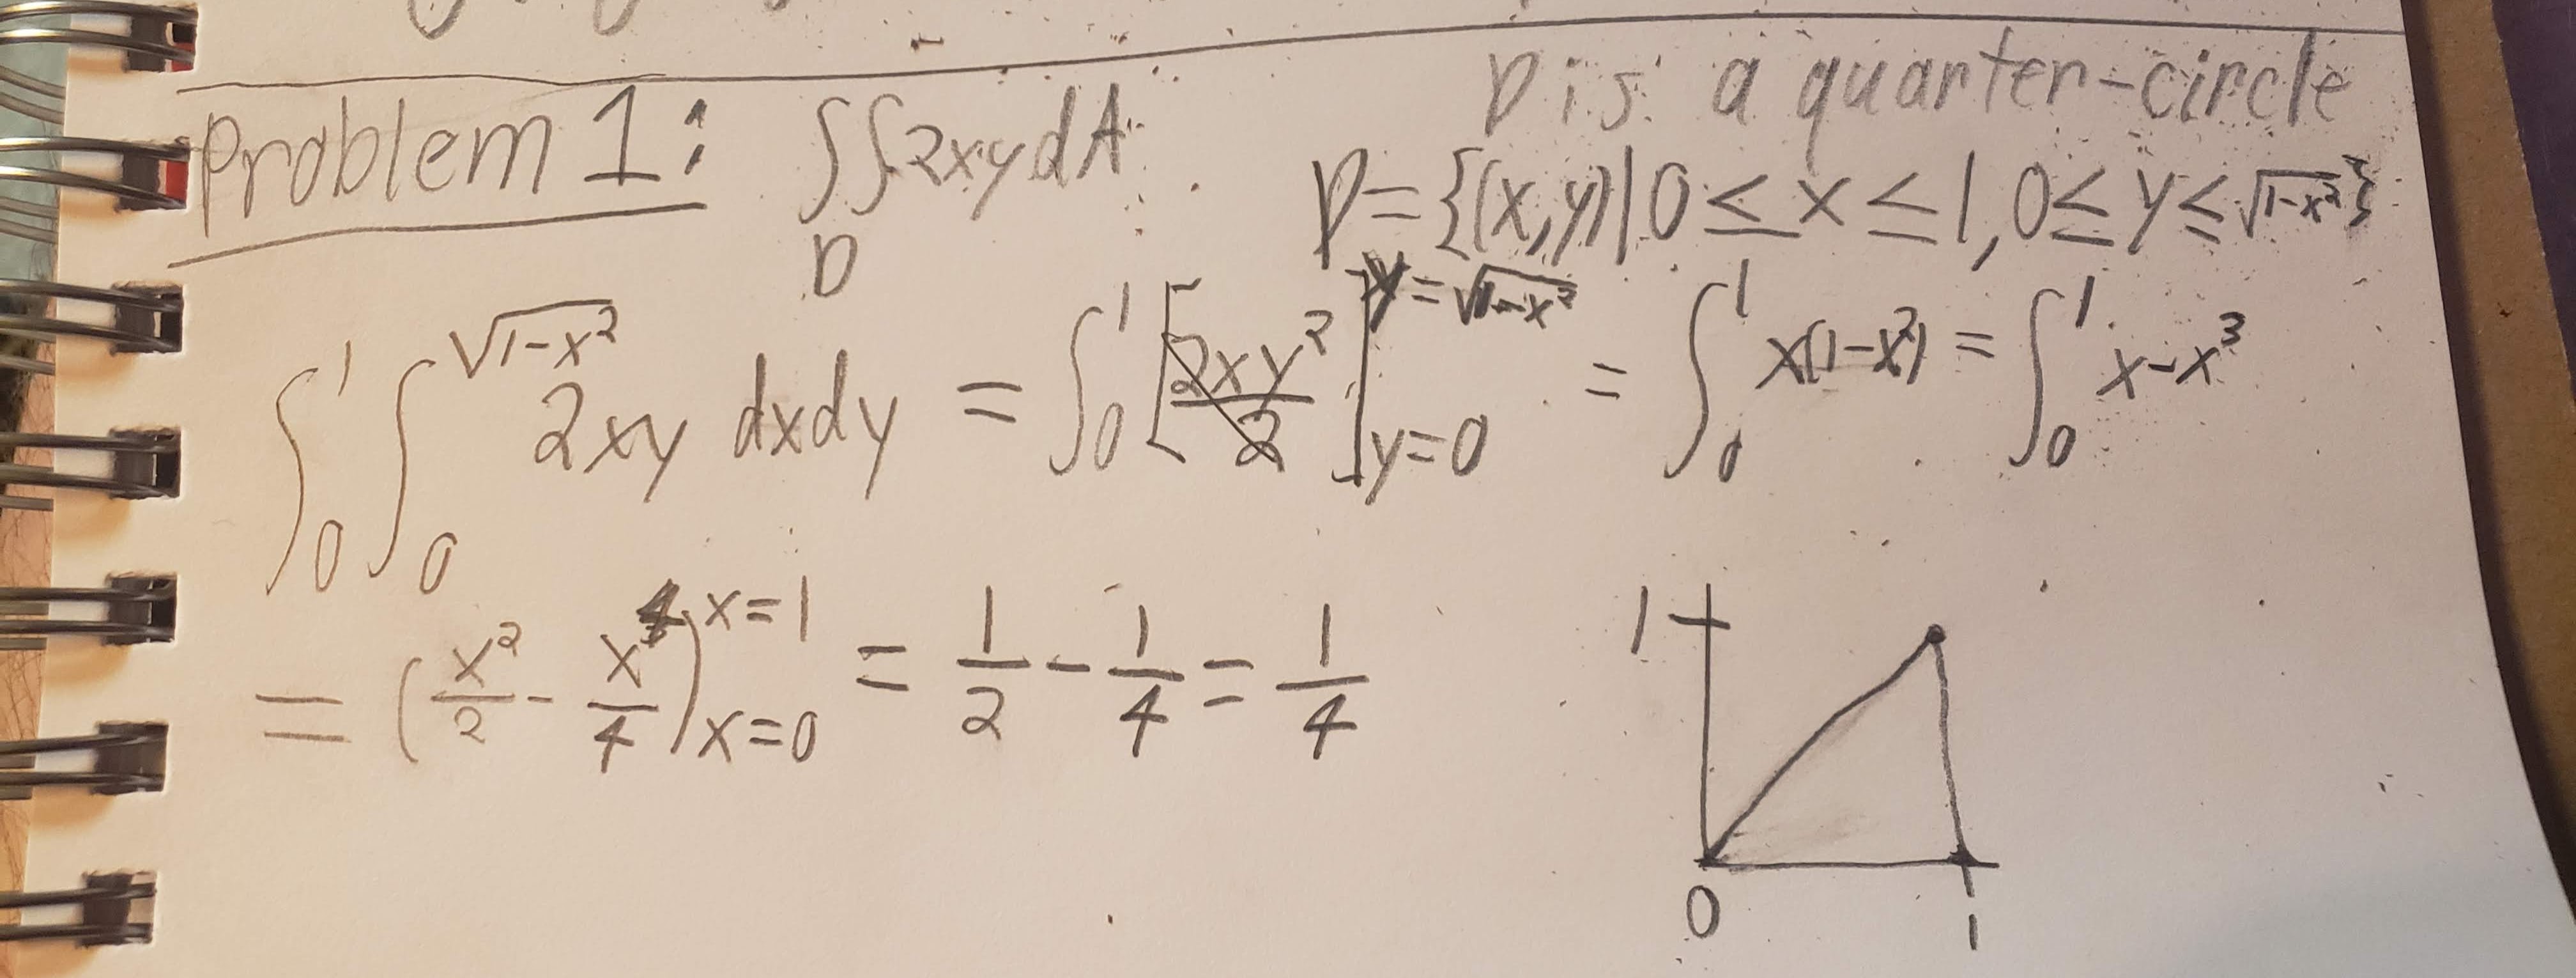 Problem 1: ∫∫2xydA D is a quarter-circle
D D={(x,y)|0≤x≤1,0≤y≤√1-x²}
∫₀¹∫₀^√1-x² 2xy dxdy = ∫₀¹[2xy²/2]y=0 y=√1-x² = ∫₀¹ x(1-x²) = ∫₀¹ x-x³
= (x²/2 - x⁴/4) x=1 x=0 = 1/2 - 1/4 = 1/4
1
0 1